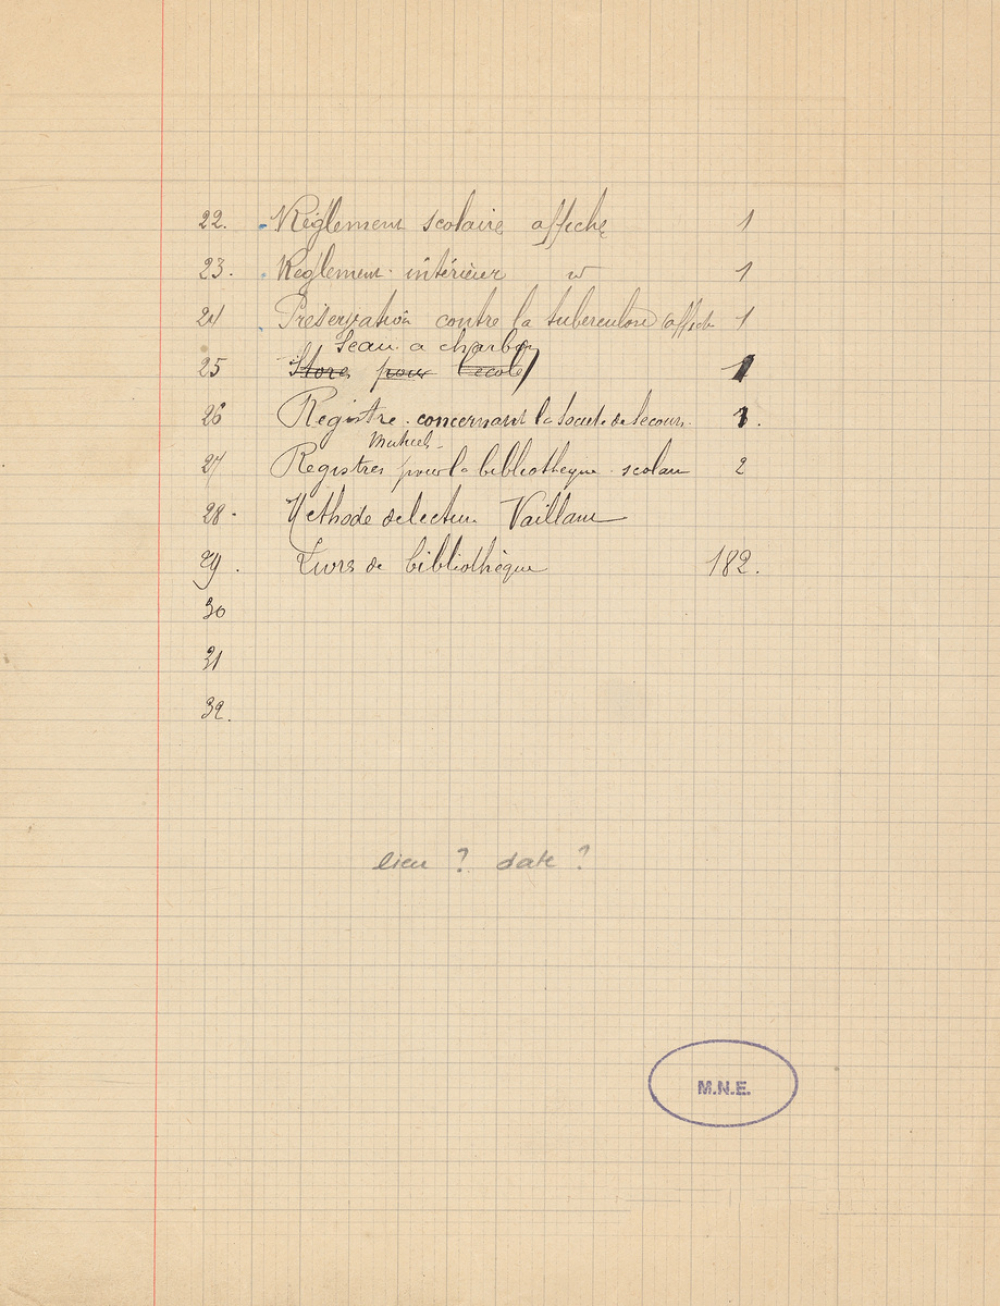 22. Règlement scolaire affiche 1
23. Règlement intérieur 1
24 Préservation contre la tuberculose (affich 1
Seau a charbon
25 Store pour l'école 1
26 Registre concernant la Société de Secours. 1.
Mutuels
27 Registres pour la bibliothèque scolaire 2
28. Méthode de lecture Vaillant
29. Livres de bibliothèque 182.
30
31
32.
lieu ? date ?
M.N.E.